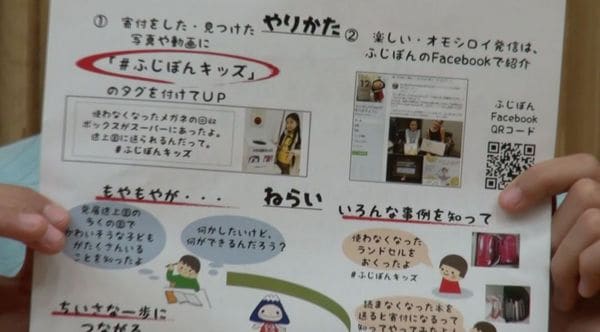 やりかた
① 寄付をした・見つけた
写真や動画に
「#ふじぼんキッズ」
のタグを付けてUP
使わなくなったメガネの回収
ボックスがスーパーにあったよ。
途上国に送られるんだって。
#ふじぼんキッズ
② 楽しい・オモシロイ発信は、
ふじぼんのFacebookで紹介
ふじぼん
Facebook
QRコード
ねらい
もやもやが…
発展途上国の
多くの国で
かわいそうな子ども
がたくさんいる
ことを知ったよ
何かしたいけど、
何ができるんだろう？
ちいさな一歩に
つながる
いろんな事例を知って
使わなくなった
ランドセルを
おくったよ
#ふじぼんキッズ
読まなくなった本を
送ると寄付になるって
知ってやってみたよ